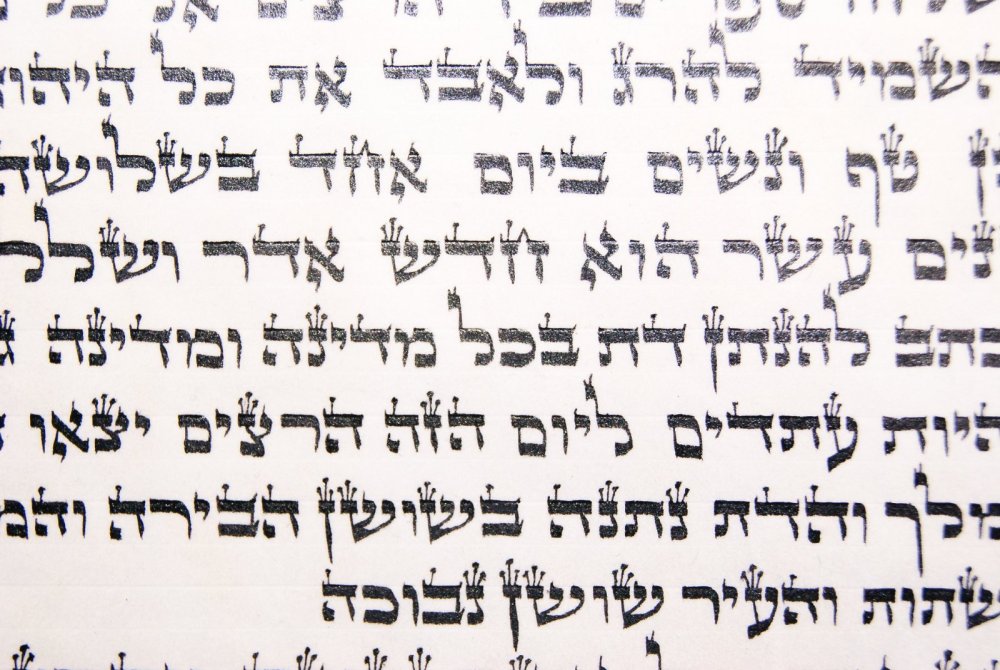 השמיד להרג ולאבד את כל היהו
ן טף ונשים ביום אחד בשלושה
נים עשר הוא חדש אדר ושלל
כתב להנתן דת בכל מדינה ומדינה
היות עתדים ליום הזה הרצים יצאו
מלך והדת נתנה בשושן הבירה והמ
שתות והעיר שושן נבוכה